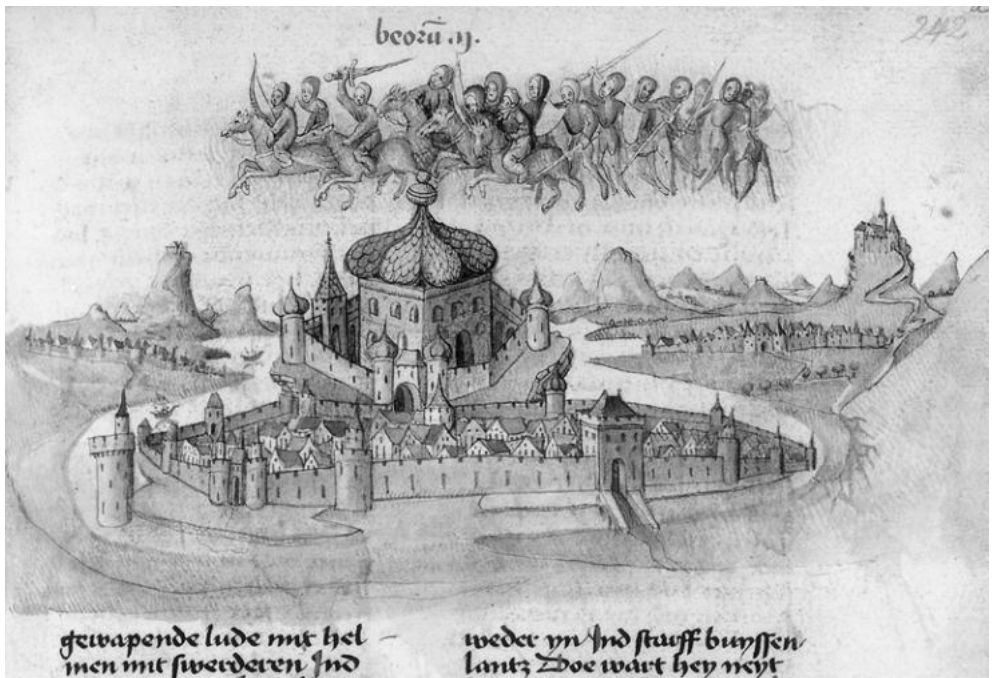 242
gewapende lude mit hel
men mit swerderen Ind
weder yn Ind starff buyssen
lantz Doe wart hey neyt